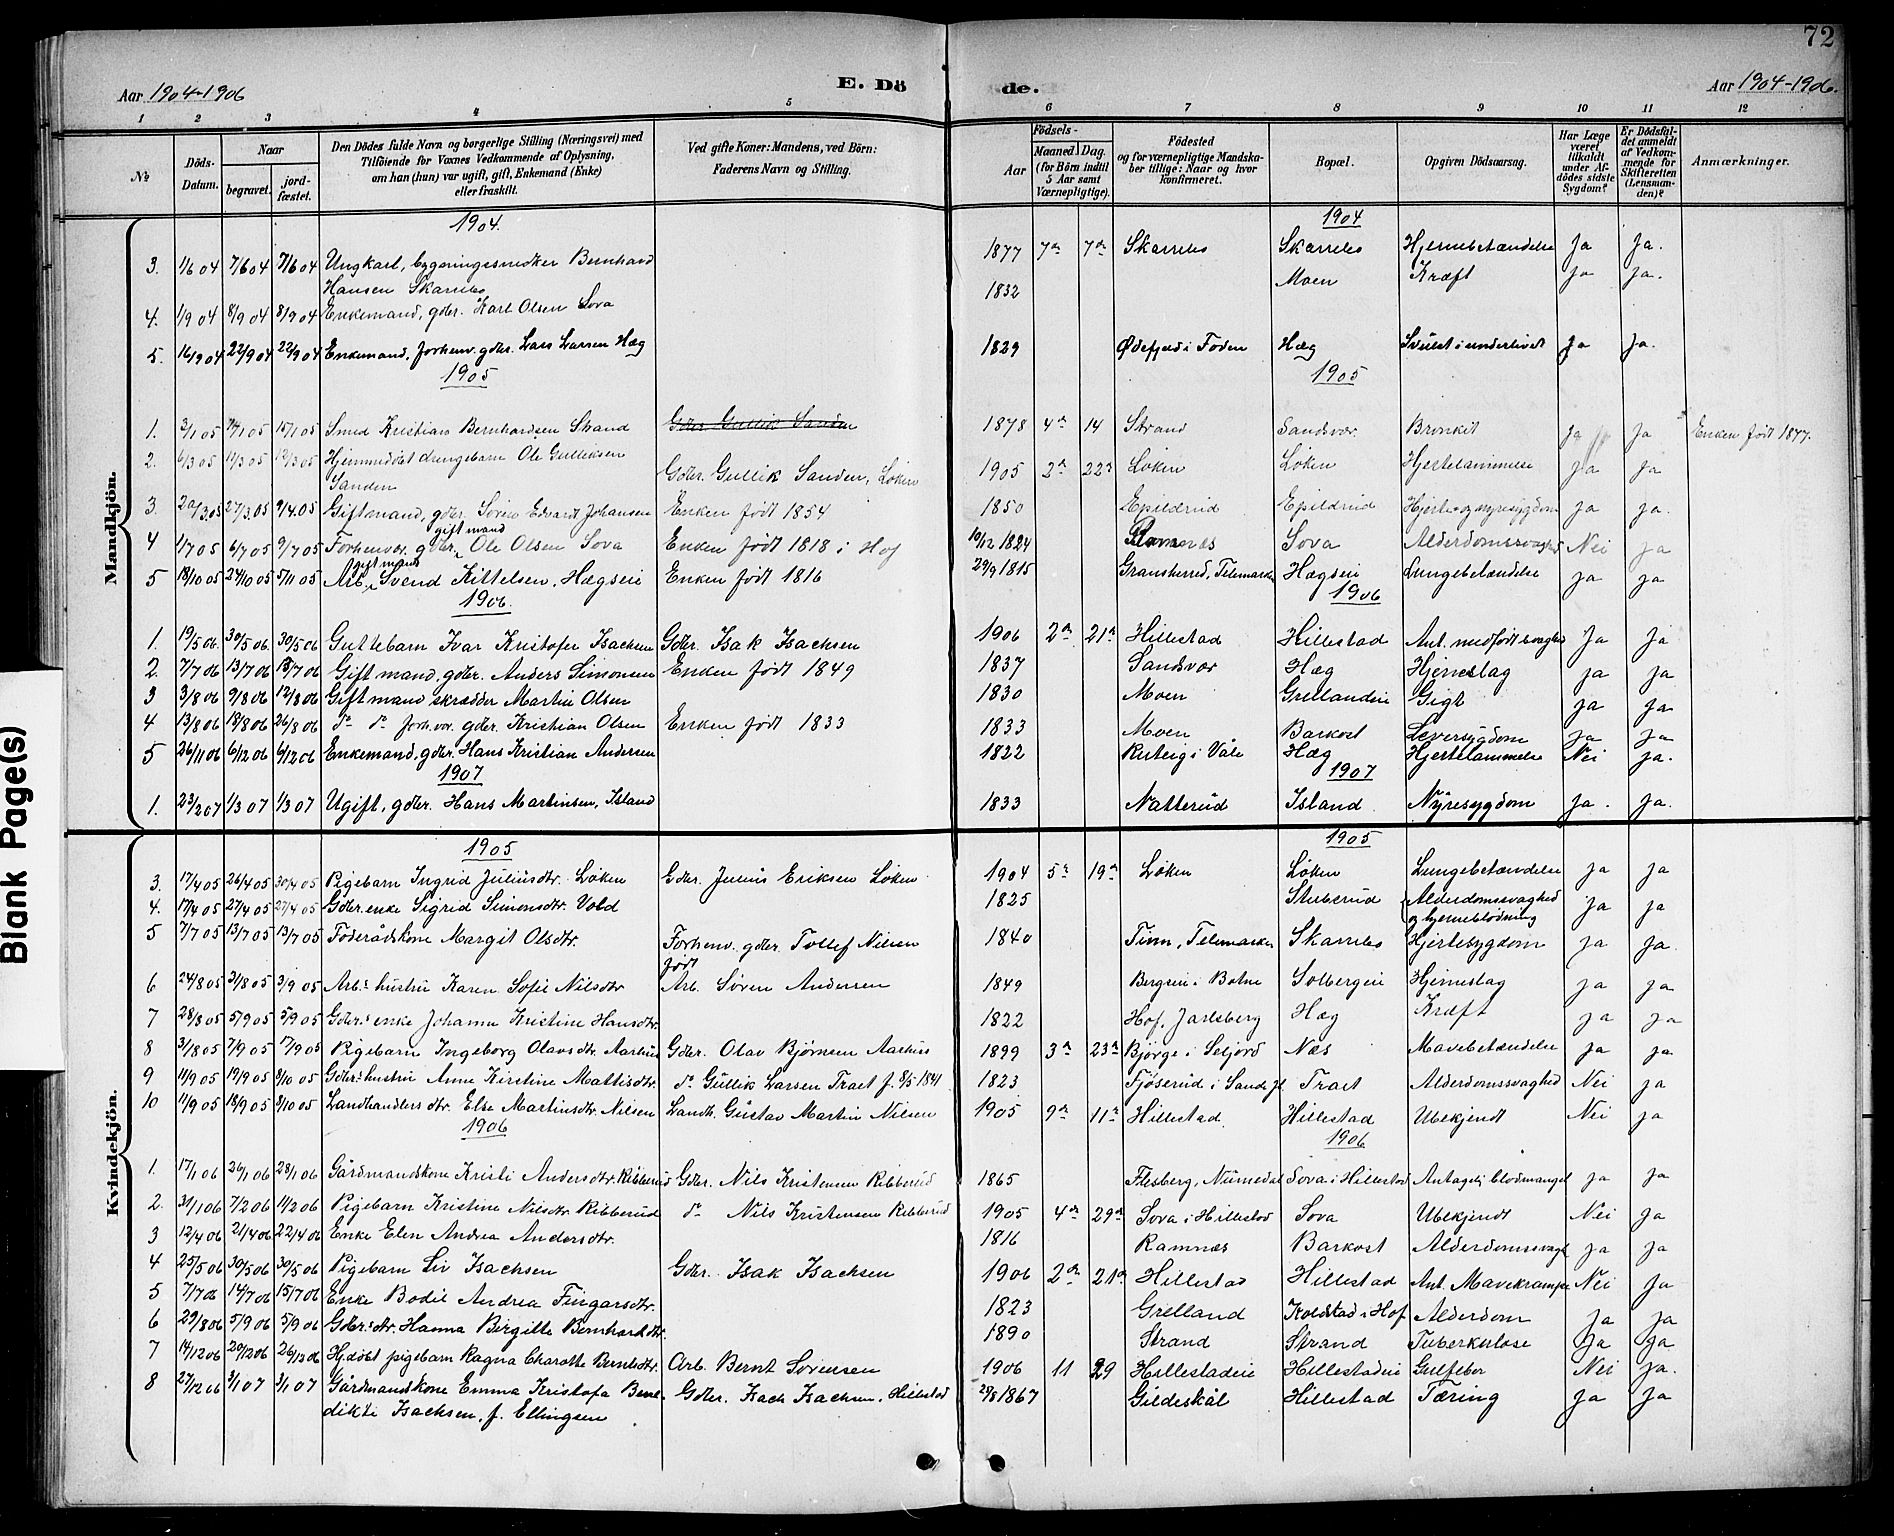 72
Aar 1904-1906
E. Dö
de.
Aar 1904-1906.
1 2 3 4 5 6 7 8 9 10 11 12
№
Döds-Datum.
Naar
begravet.
jord-fæstet.
Den Dödes fulde Navn og borgerlige Stilling (Næringsvei) med
Tilföiende for Voxnes Vedkommende af Oplysning,
om han (hun) var ugift, gift, Enkemand (Enke)
eller fraskilt.
Ved gifte Koner: Mandens, ved Börn:
Faderens Navn og Stilling.
Födsels-
Aar
Maaned Dag.
(for Börn indtil
5 Aar samt
Værnepligtige).
Födested
og for værnepligtige Mandska-
ber tillige: Naar og hvor
konfirmeret.
Bopæl.
Opgiven Dödsaarsag.
Har Læge
været
tilkaldt
under Af-
dödes sidste
Sygdom?
Er Dödsfal-
det anmeldt
af Vedkom-
mende for
Skifteretten
(Lensman-
den)?
Anmærkninger.
Mandkjön.
1904. 1904
3. 1/6 04 7/6 04 7/6 04 Ungkarl, bygningssnedker Bernhard 1877 7de 7de Skarrebo Skarrebo Hjernebetændelse Ja Ja.
Hansen Skarrebo
4. 1/9 04 8/9 04 8/9 04 Enkemand, gdbr. Karl Olsen Sova 1832 Moen Kræft Ja Ja.
5. 16/9 04 22/9 04 22/9 04 Enkemand, forhenv. gdbr. Lars Larsen Hæg 1829 Ødefjeld i Foden Hæg Svulst i underlivet Ja Ja.
1905 1905
1. 3/1 05 14/1 05 15/1 05 Smed Kristian Bernhardsen Strand Gdbr. Gullik Sanden 1878 4de 14 Strand Sandsvær Bronkit Ja Ja Enken født 1877.
2. 6/3 05 12/3 05 12/3 05 Hjemmedøbt drengebarn Ole Gulliksen
Sanden Gdbr. Gullik Sanden, Løken 1905 2de 22de Løken Løken Hjertelammelse Ja Ja
3. 20/3 05 27/3 05 9/4 05 Gift mand, gdbr. Søren Edvardt Johansen Enken født 1854 1850 Epildrud Epildrud Hjerte og nyresygdom Ja Ja.
gift mand
4 1/7 05 6/7 05 9/7 05 Forhenvær. gdbr. Ole Olsen Sova Enken født 1818 i Hof 10/12 1824 Ramnæs Sova Alderdomssvaghed Nei Ja
gift mand
5 18/10 05 24/10 05 5/11 05 Arb. Svend Kittelsen, Hægseie Enken født 1816 29/9 1815 Gransherred, Telemarken Hægseie Lungebetændelse Ja Ja
1906. 1906
1. 19/5 06 30/5 06 30/5 06 Guttebarn Ivar Kristofer Isachsen Gdbr. Isak Isachsen 1906 2de 21de Hillestad Hillestad Ant. medfødt svaghed Ja Ja
2. 7/7 06 13/7 06 13/7 06 Gift mand, gdbr. Anders Simonsen Enken født 1849 1837 Sandsvær Hæg Hjerneslag Ja Ja
3 3/8 06 9/8 06 12/8 06 Gift mand skrædder Martin Olsen 1830 Moen Grellandeie Gigt Ja Ja
4 13/8 06 18/8 06 26/8 06 do do forh.vær. gdbr. Kristian Olsen Enken født 1833 1833 Moen Barkost Leversygdom Ja Ja
5 26/11 06 6/12 06 6/12 06 Enkemand, gdbr. Hans Kristian Andersen 1822 Kirteig i Våle Hæg Hjertelammelse Nei Ja.
1907 1907
1. 23/2 07 1/3 07 1/3 07 Ugift, gdbr. Hans Martinsen, Island 1833 Natterud Island Nyresygdom Ja. Ja.
Kvindekjön.
1905 1905
3. 17/4 05 26/4 05 30/4 05 Pigebarn Ingrid Juliusdtr. Løken Gdbr. Julius Eriksen Løken 1904 5te 19de Løken Løken Lungebetændelse Ja Ja
4. 17/4 05 27/4 05 27/4 05 Gdbr. enke Sigrid Simonsdtr. Vold 1825 Stuberud Alderdomssvaghed
og hjerneblødning Ja Ja
5 7/7 05 13/7 05 13/7 05 Føderådskone Margit Olsdtr. Forhenv. gdbr. Tollef Nilsen 1840 Tinn, Telemarken Skarrebo Hjertesygdom Ja Ja.
født
6 24/8 05 31/8 05 3/9 05 Arb.s hustru Karen Sofie Nilsdtr Arb. Søren Andersen 1849 Bergseie i Botne Solbergeie Hjerneslag Ja Ja
7 28/8 05 5/9 05 5/9 05 Gdbr.s enke Johanne Kristine Hansdtr. 1822 Hof, Jarlsberg Hæg Kræft Ja Ja
8 31/8 05 7/9 05 17/9 05 Pigebarn Ingeborg Olavsdtr. Aarhus Gdbr. Olav Bjørnsen Aarhus 1899 3de 23de Bjørge i Seljord Næs Mavebetændelse Ja Ja.
9 11/9 05 19/9 05 8/10 05 Gdbr.s hustru Anne Kirstine Mattisdtr. do Gullik Larsen Traet f. 8/5 1841 1823 Fjøserud i Sande Traet Alderdomssvaghed Nei Ja
10 11/9 05 18/9 05 8/10 05 Landhandlers dtr. Else Martinsdtr. Nilsen Landh. Gustav Martin Nilsen 1905 9de 11te Hillestad Hillestad Ubekjendt Nei Ja
1906 1906
1. 17/1 06 26/1 06 28/1 06 Gårdmandskone Kristi Andersdtr. Ribberud Gdbr. Nils Kristensen Ribberud 1865 Flesberg, Numedal Sova i Hillestad Antagelig blodmangel Ja Ja
2. 31/1 06 7/2 06 11/2 06 Pigebarn Kristine Nilsdtr. Ribberud do Nils Kristensen Ribberud 1905 4de 29de Sova i Hillestad Sova Ubekjendt Nei Ja
3 12/4 06 21/4 06 22/4 06 Enke Elen Andrea Andersdtr. 1816 Ramnæs Barkost Alderdomssvagh Ja Ja
4 25/5 06 30/5 06 30/5 06 Pigebarn Liv Isachsen Gdbr. Isak Isachsen 1906 2de 21de Hillestad Hillestad Ant. Mavekrampe Nei Ja
5 7/7 06 14/7 06 15/7 06 Enke Bodil Andrea Fingarsdtr. 1823 Grelland Koldstad i Hof Alderdom Ja Ja
6 29/8 06 5/9 06 5/9 06 Gdbr.s dtr. Hanna Birgitte Bernhardsdtr 1890 Strand Strand Tuberkulose Ja Ja
7 14/12 06 20/12 06 26/12 06 Hj.døbt pigebarn Ragna Charotte Berntsdtr. Arb. Bernt Sørensen 1906 11 29 Hillestadeie Hillestadeie Gulfeber Nei Ja.
8 27/12 06 3/1 07 3/1 07 Gårdmandskone Emma Kristofa Bene- Gdbr. Isach Isachsen, Hillestad 29/8 1867 Gildeskål Hillestad Tæring Ja Ja
dikte Isachsen, f. Ellingsen
Blank Page(s)